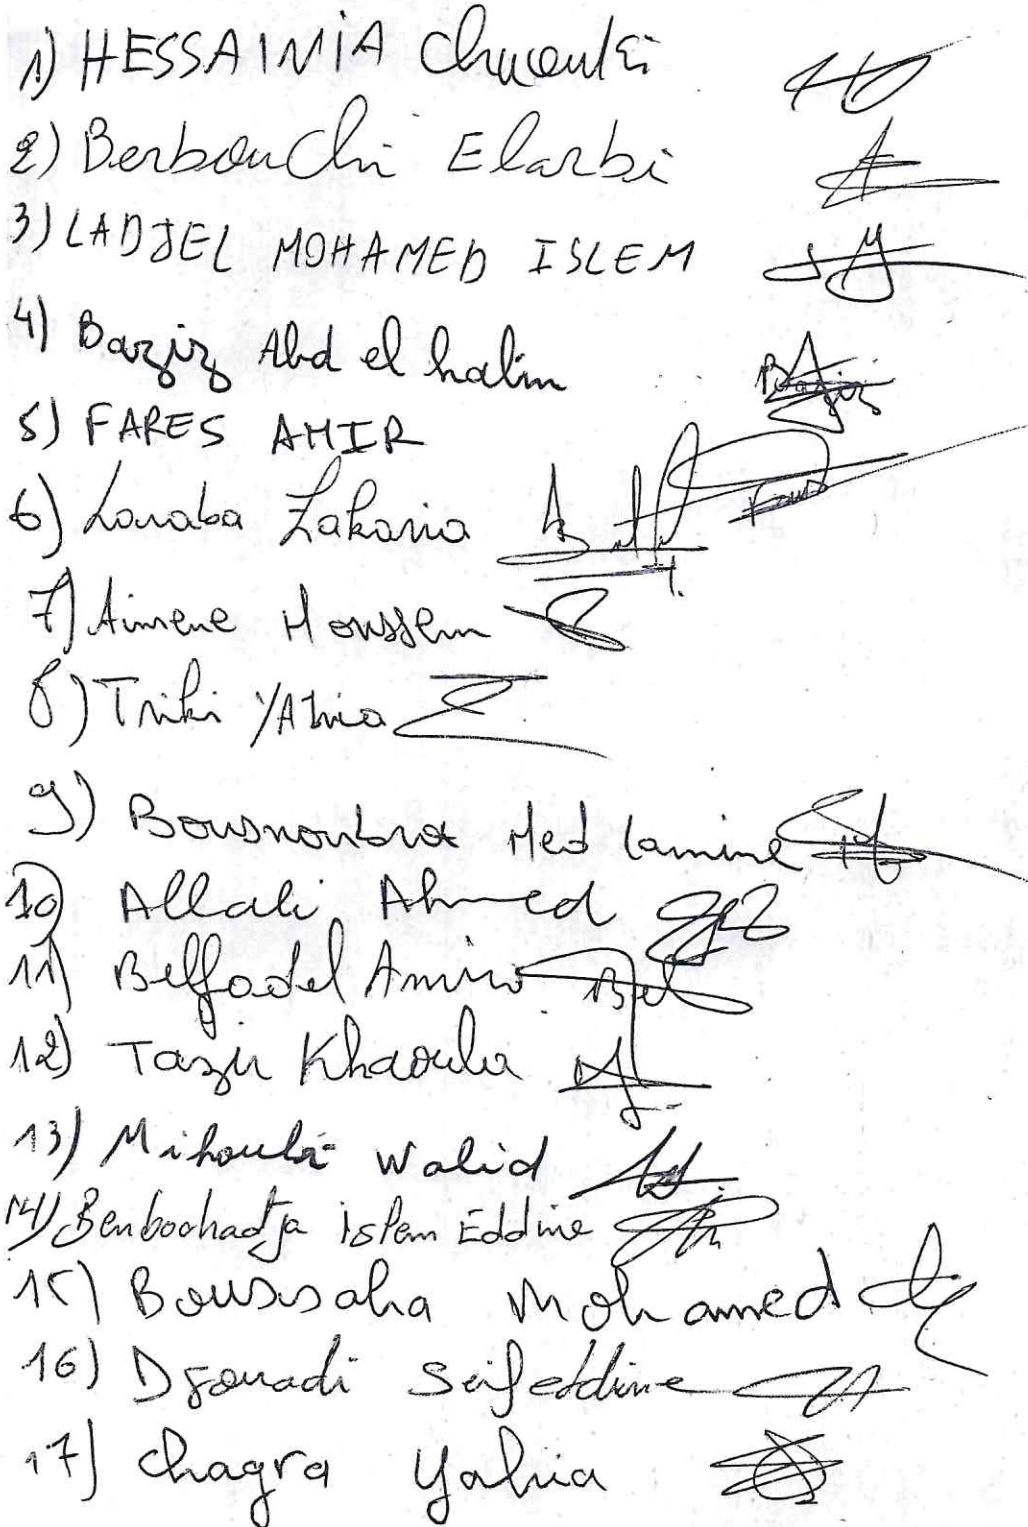 1) HESSAINIA Chaouki
2) Berbouchi Elarbi
3) LADJEL MOHAMED ISLEM
4) Baziz Abd el halim
Baziz
5) FARES AMIR
6) Louaba Zakaria
7) Aimene Houssem
8) Triki YAhia
9) Med lamine
10) Allali Ahmed
11) Belfadel Amira
Bel
12) Tazir Khaoula
13) Mihoubi Walid
14) Benboohadja islem Eddine
15) Boussaha Mohamed
16) Djouadi Seifeddine
17) Chagra Yahia